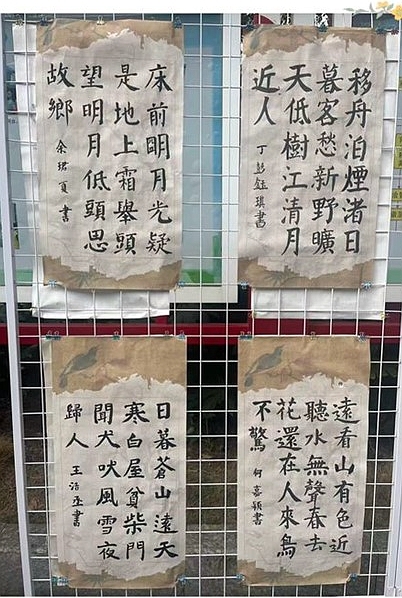 移舟泊煙渚日
暮客愁新野曠
天低樹江清月
近人 丁 書
床前明月光疑
是地上霜舉頭
望明月低頭思
故鄉 余 書
遠看山有色近
聽水無聲春去
花還在人來鳥
不驚 何嘉穎書
日暮蒼山遠天
寒白屋貧柴門
聞犬吠風雪夜
歸人 王浩丞書